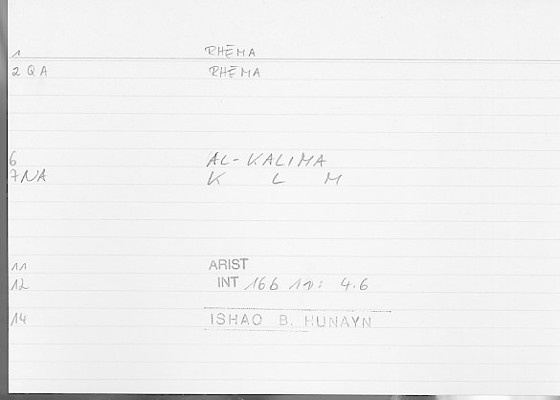 1 RHĒMA
2 QA RHĒMA
6 AL-KALIMA
7 NA K L M
11 ARIST
12 INT 16b 19: 4.6
14 ISHAQ B. HUNAYN